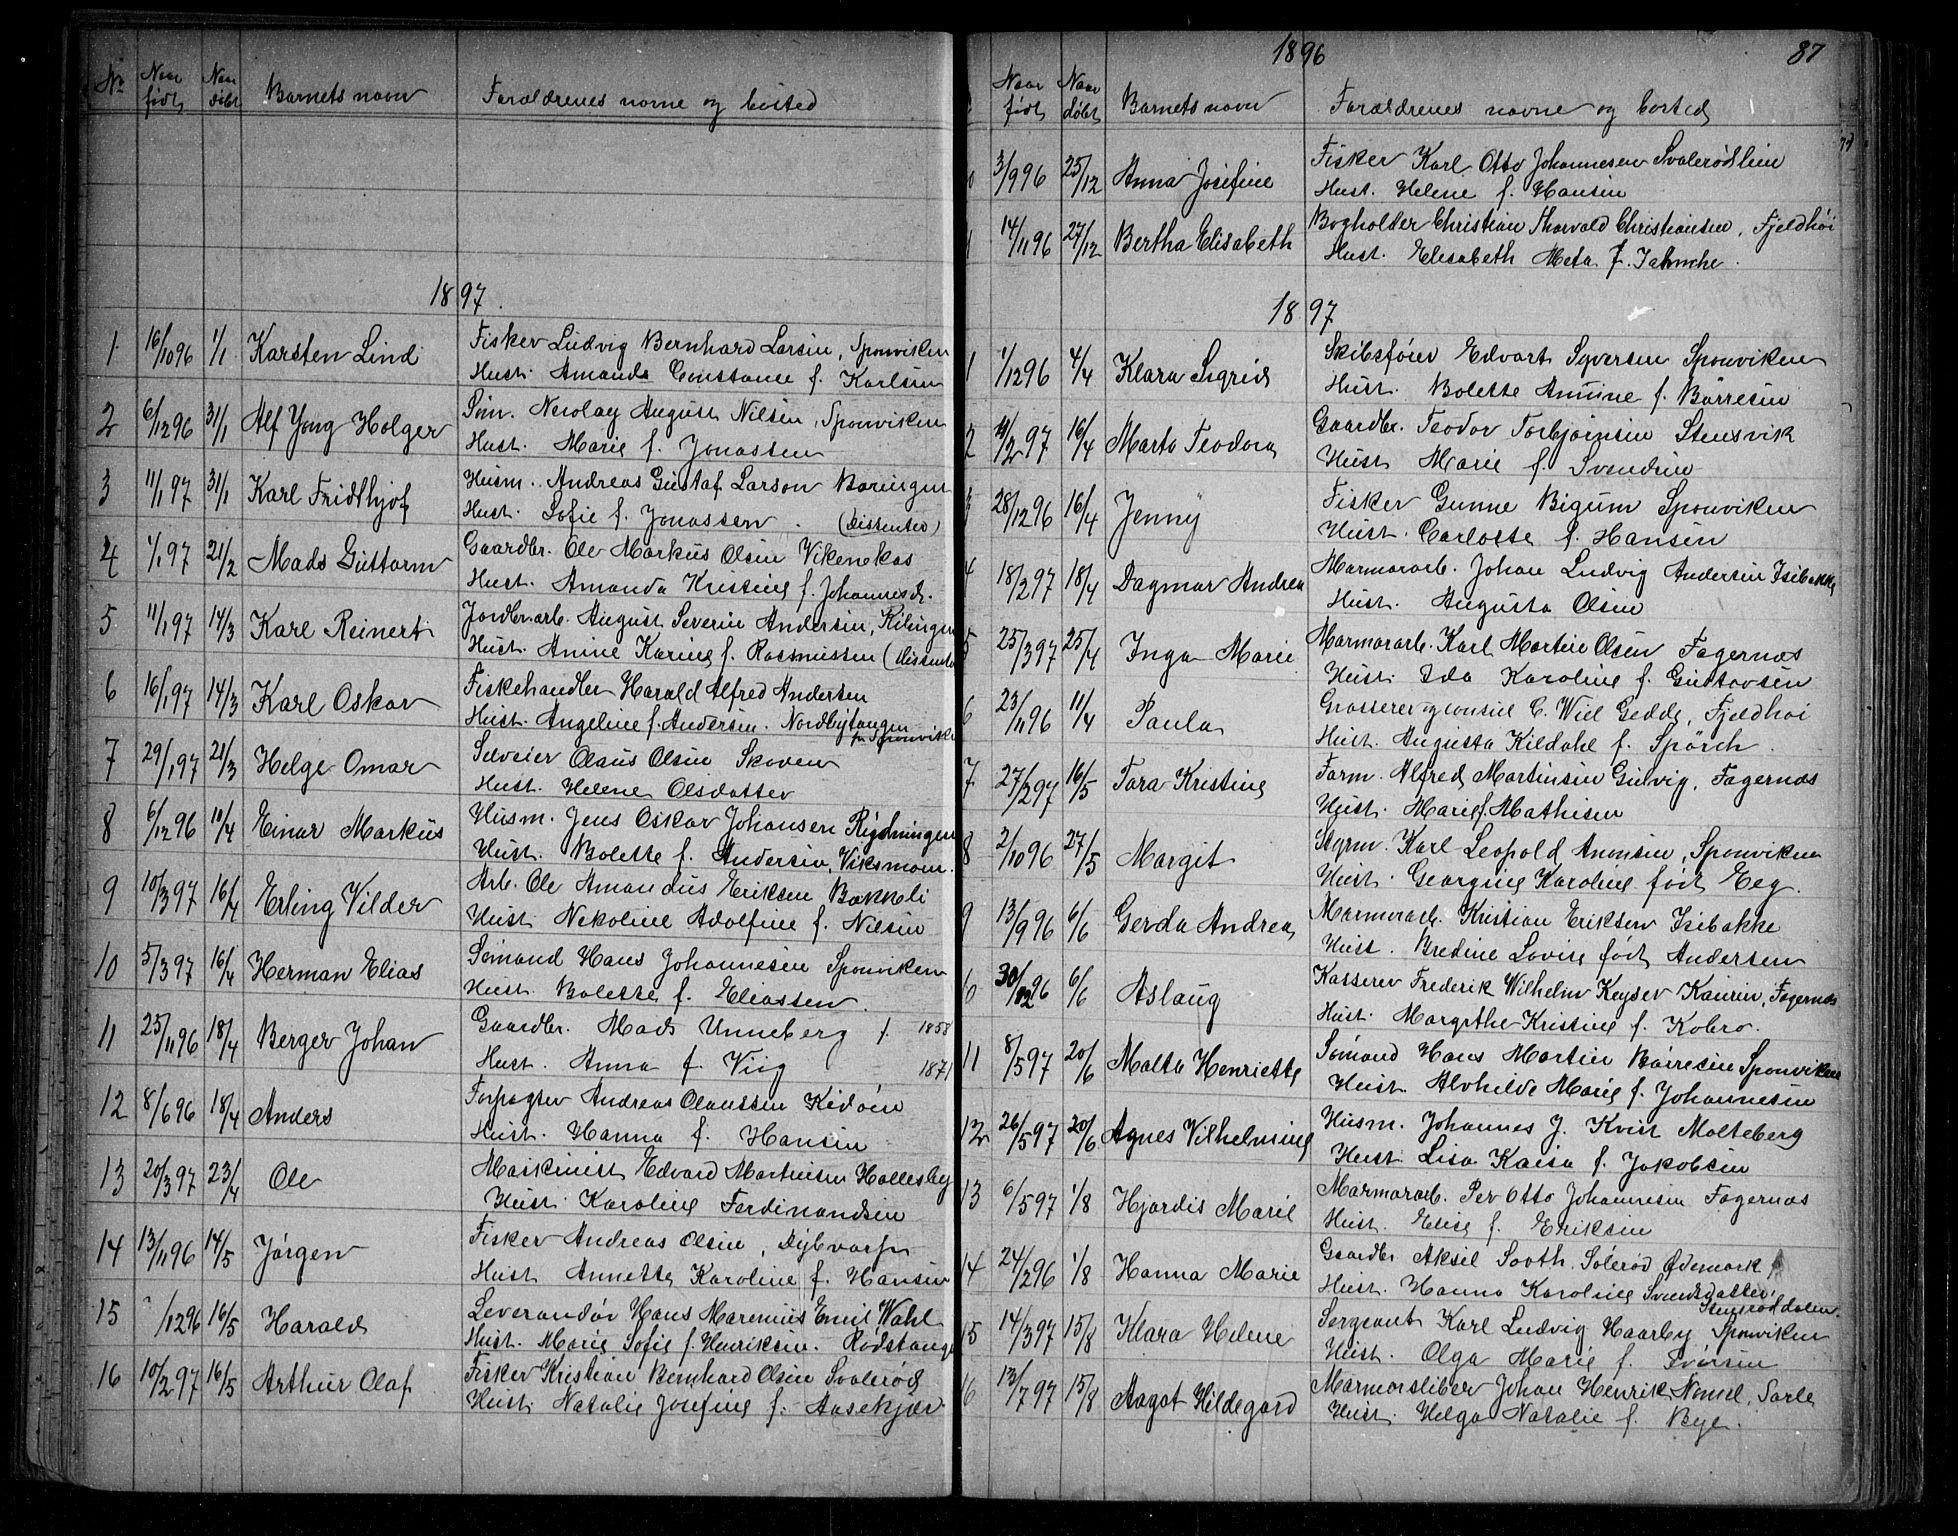 No Naar født Naar døbt Barnets navn Forældrenes navne og bosted
1897.
1 16/10 96 1/1 Karsten Lind Fisker Ludvig Bernhard Larsen, Sponviken
Hust. Amanda Constance f. Karlsen
2 6/12 96 31/1 Alf Yong Holger Søm. Nicolay August Nilsen, Sponviken
Hust. Marie f. Jonassen
3 11/1 97 31/1 Karl Fridthjof Husm. Andreas Gustaf Larson Boringen
Hust. Sofie f. Jonassen. (Dissenter)
4 1/1 97 21/2 Mads Guttorm Gaardbr. Ole Markus Olsen Vikenekas
Hust. Amanda Kristine f. Johannesd.
5 11/1 97 14/3 Karl Reinert Jordbr.arb. August Severin Andersen, Kibingen
Hust. Anine Karine f. Rasmussen (Dissenter
6 16/1 97 14/3 Karl Oskar Fiskehandler Harald Alfred Andersen
Hust. Angeline f. Andersen. Nordbytangen
pr Sponviken
7 29/1 97 21/3 Helge Omar Selveier Olaus Olsen Skoven
Hust. Helene Olsdatter
8 6/12 96 11/4 Einar Markus Husm. Jens Oskar Johansen Rydningen
Hust. Bolette f. Andersen, Viksmoen.
9 10/3 97 16/4 Erling Vilder Arb. Ole Amandus Eriksen Bakkeli
Hust. Nekoline Adolfine f. Nilsen
10 5/3 97 16/4 Herman Elias Sømand Hans Johannesen Sponviken
Hust. Bolette f. Eliassen.
11 25/11 96 18/4 Berger Johan Gaardbr. Mads Unneberg f. 1858
Hust. Anna f. Viig 1871
12 8/6 96 18/4 Anders Forpagter Andreas Olaussen Kidøen
Hust. Hanna f. Hansen
13 20/3 97 23/4 Ole Maskinist Edvard Martinsen Hollesby
Hust. Karoline Ferdinandsen
14 13/11 96 14/5 Jørgen Fisker Andreas Olsen, Dybvarp
Hust. Annette Karoline f. Hansen
15 /12 96 16/5 Harald Leverandør Hans Marenius Emil Wahl
Hust. Marie Sofie f. Henriksen. Rødstange
16 10/2 97 16/5 Arthur Olaf Fisker Kristian Bernhard Olsen Svalerød
Hust. Natalie Josefine f. Aasekjær
1896 87
Naar født Naar døbt Barnets navn Forældrenes navne og bosted
0 3/9 96 25/12 Anna Josefine Fisker Karl Otto Johannesen Svalerødlien
Hust. Helene f. Hansen
1 14/11 96 27/12 Bertha Elisabeth Bogholder Christian Thorvald Christiansen, Fjeldhøi
Hust. Elisabeth Meta f. Jahnche.
1897
1 1/12 96 4/4 Klara Sigrid Skibsfører Edvart Syversen Sponviken
Hust. Bolette Amine f. Børresen
2 11/2 97 16/4 Marta Teodora Gaardbr. Teodor Torbjørnsen Stensvik
Hust Marie f. Svendsen
3 28/12 96 16/4 Jenny Fisker Gunne Bigum Sponviken
Hust. Carlotte f. Hansen
4 18/2 97 18/4 Dagmar Andrea Marmorarb. Johan Ludvig Andersen Isebakke
Hust. Augusta Olsen
5 25/3 97 25/4 Inga Marie Marmorarb. Karl Martin Olsen Fagernæs
Hust. Ida Karoline f. Gustavsen
6 23/11 96 11/4 Paula Grosserer og consul C. Wiel Gedde, Fjeldhøi
Hust. Augusta Kildahl f. Spørch.
7 27/2 97 16/5 Tora Kristine Form. Alfred Martinsen Gulvig, Fagernæs
Hust. Marie f. Mathisen
8 2/10 96 27/5 Margit Styrm. Karl Leopold Amonsen, Sponviken
Hust. Georgine Karoline født Eeg.
9 13/9 96 6/6 Gerda Andrea Marmorarb. Kristian Eriksen Isebakke
Hust. Bredine Lovise født Andersen
10 30/12 96 6/6 Aslaug Kasserer Frederik Wilhelm Keyser Kaurin, Fagernæs
Hust. Margrethe Kristine f. Kobro.
11 8/5 97 20/6 Malta Henriette Sømand Hans Martin Børresen Sponviken
Hust. Alvhilde Marie f. Johannesen
12 26/5 97 20/6 Agnes Vilhelmine Husm. Johannes J. Kvist Molteberg
Hust. Lisa Kaisa f. Jakobsen
13 6/5 97 1/8 Hjørdis Marie Marmorarb. Per Otto Johannesen Fagernæs
Hust. Elise f. Eriksen
14 24/2 96 1/8 Hanna Marie Gaardbr Aksel Sooth. Sølerød Ødemark
Hust. Hanna Karoline Svendsdatter,
Stenrøddalen
15 14/3 97 15/8 Klara Helene Sergeant Karl Ludvig Haarby Sponviken
Hust. Olga Marie f. Iversen
16 13/7 97 15/8 Aagot Hildegard Marmorsliber Johan Henrik Nomel, Torle
Hust. Helga Natalie f. Bye.